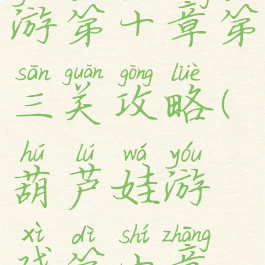 游第十章第
sān guān gōng lüè
三关攻略(
hú lú wá yóu
葫芦娃游
xì dì shí zhāng
戏第十章